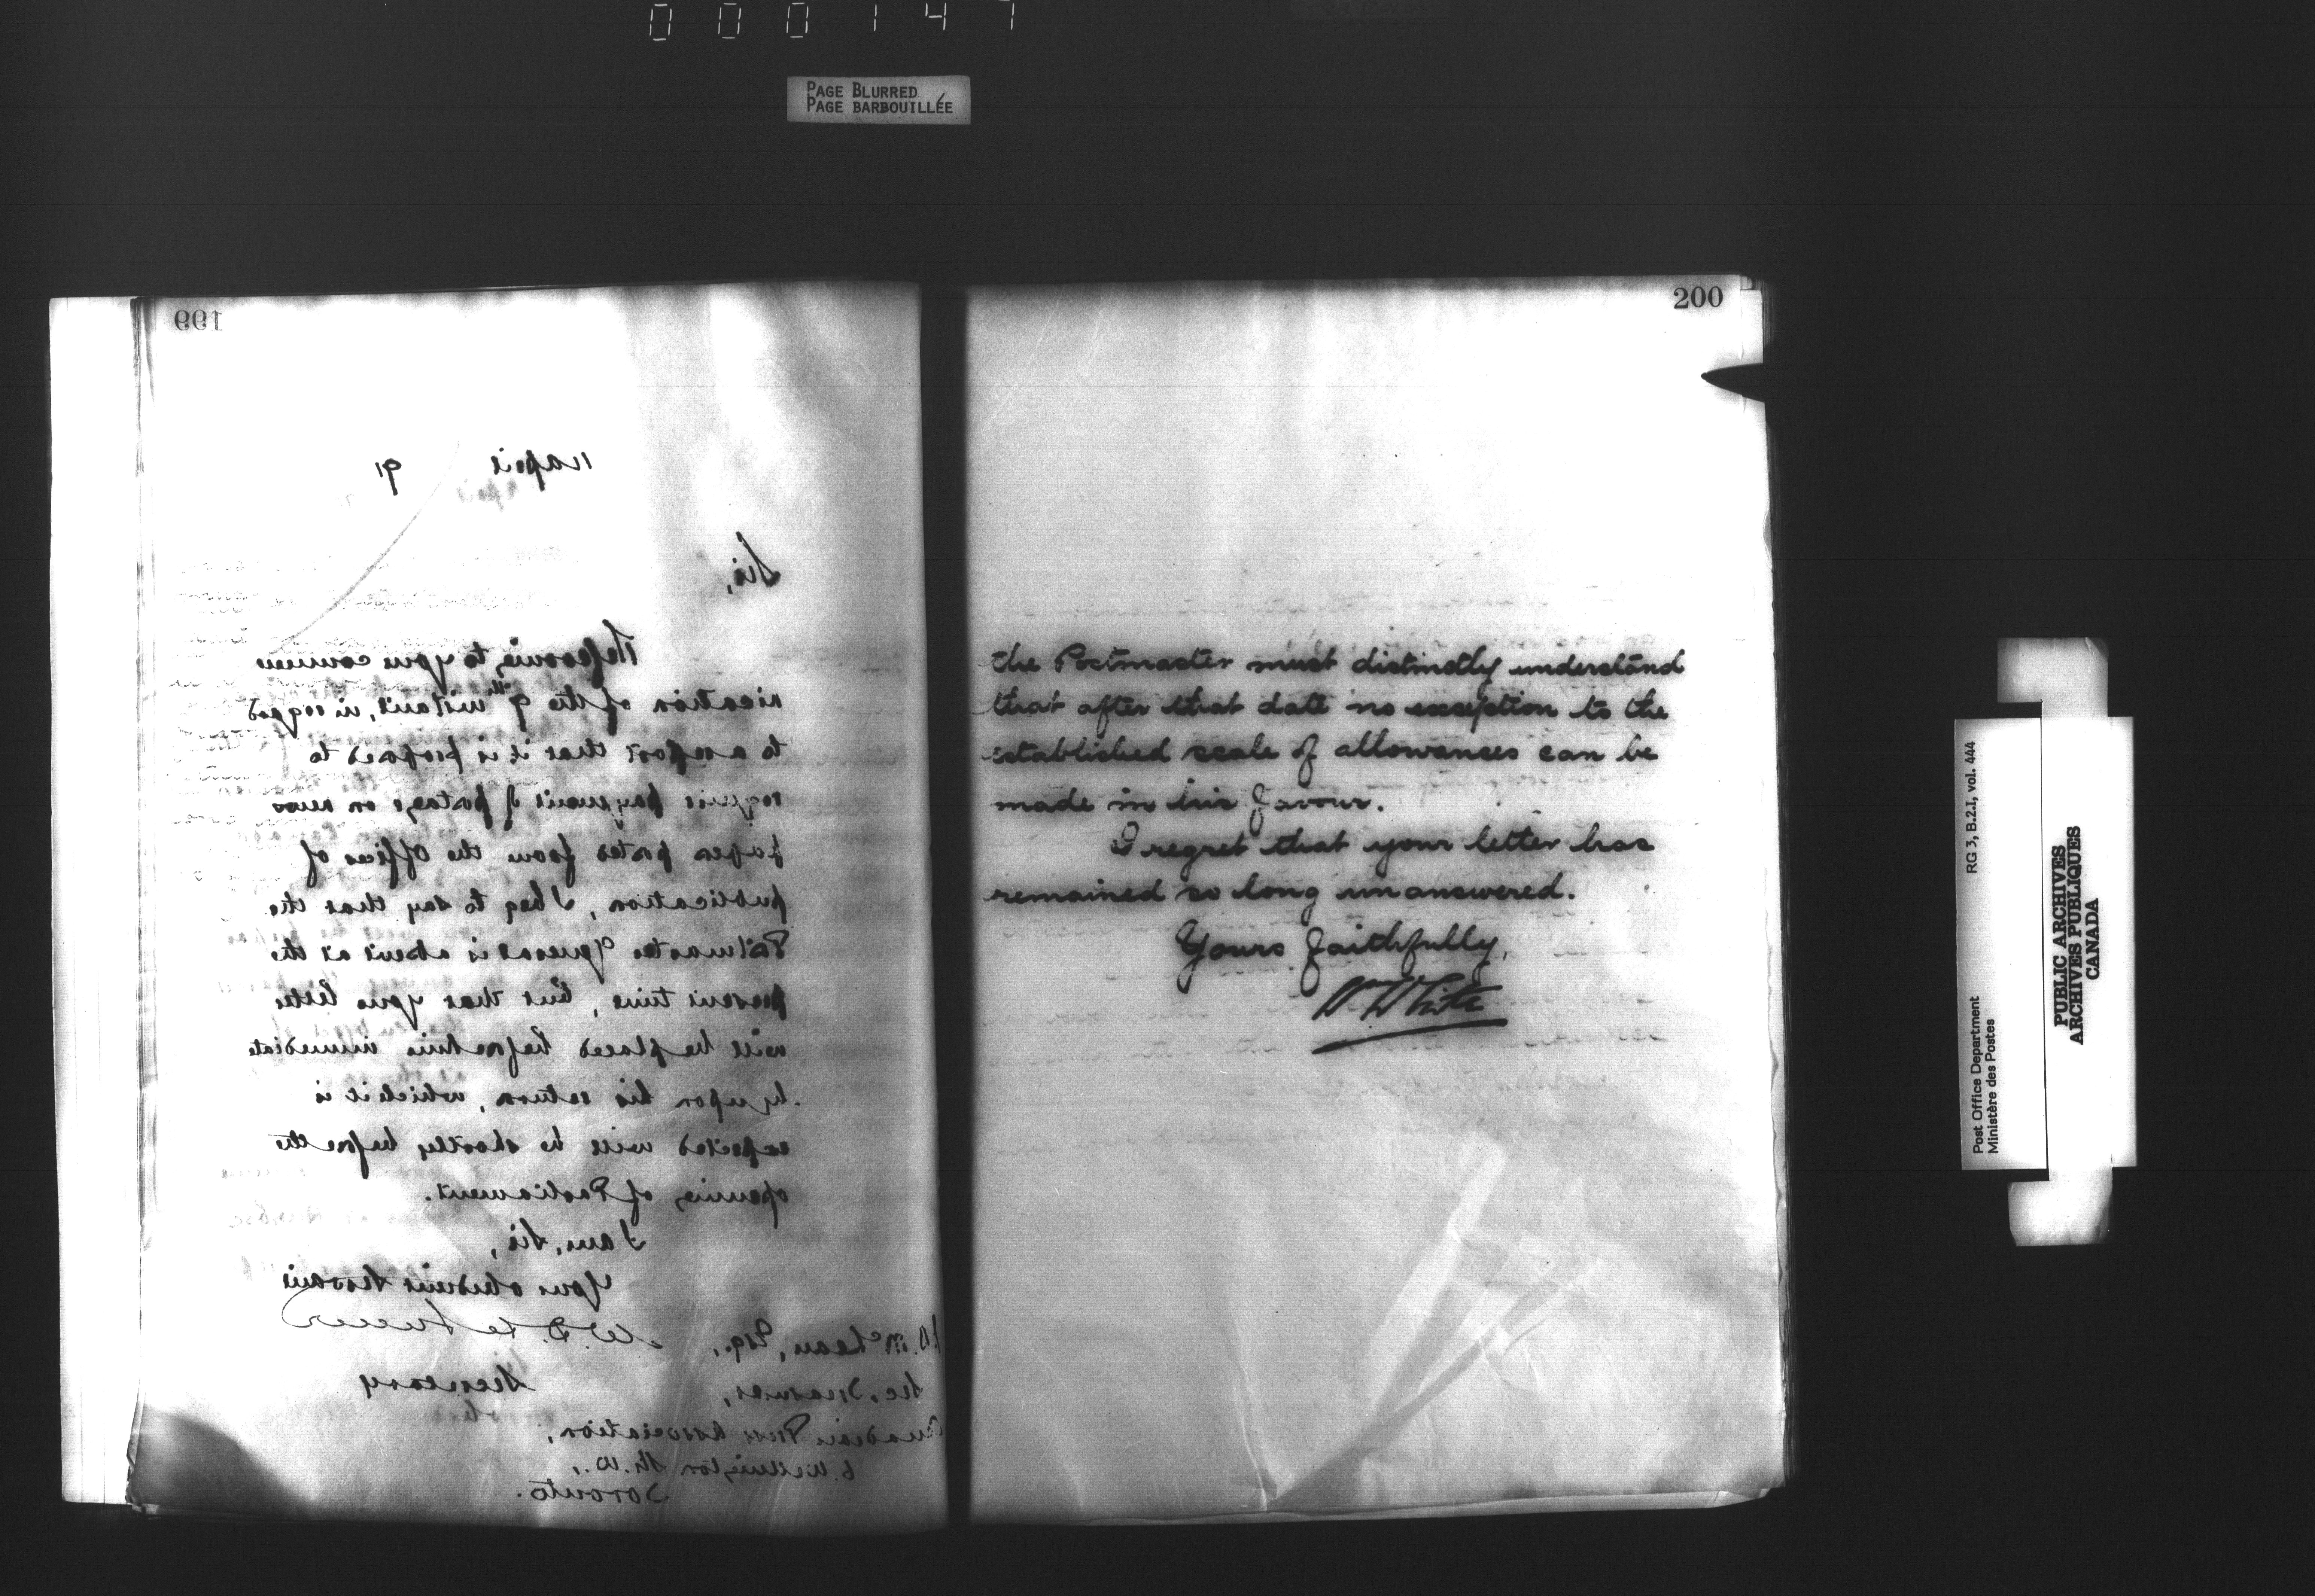 000147
PAGE BLURRED
PAGE BARBOUILLÉE
199
11 April 91
Sir,
Referring to your commu
nication of the 9th instant, in regard
to a report that it is proposed to
require payment of postage on news
papers posted from the Offices of
publication, I beg to say that the
Postmaster General is absent at the
present time, but that your letter
will be placed before him immediate
ly upon his return, which it is
expected will be shortly before the
opening of Parliament.
I am, Sir,
Your obedient Servant
W. D. Le Sueur
Secretary
J.B. McLean, Esq.,
Sec. Treasurer,
Canadian Press Association,
6 Wellington St. W.,
Toronto.
200
the Postmaster must distinctly understand
that after that date no exception to the
established scale of allowances can be
made in his favour.
I regret that your letter has
remained so long unanswered.
Yours faithfully,
W White
RG 3, B.2.I, vol. 444
Post Office Department
Ministère des Postes
PUBLIC ARCHIVES
ARCHIVES PUBLIQUES
CANADA